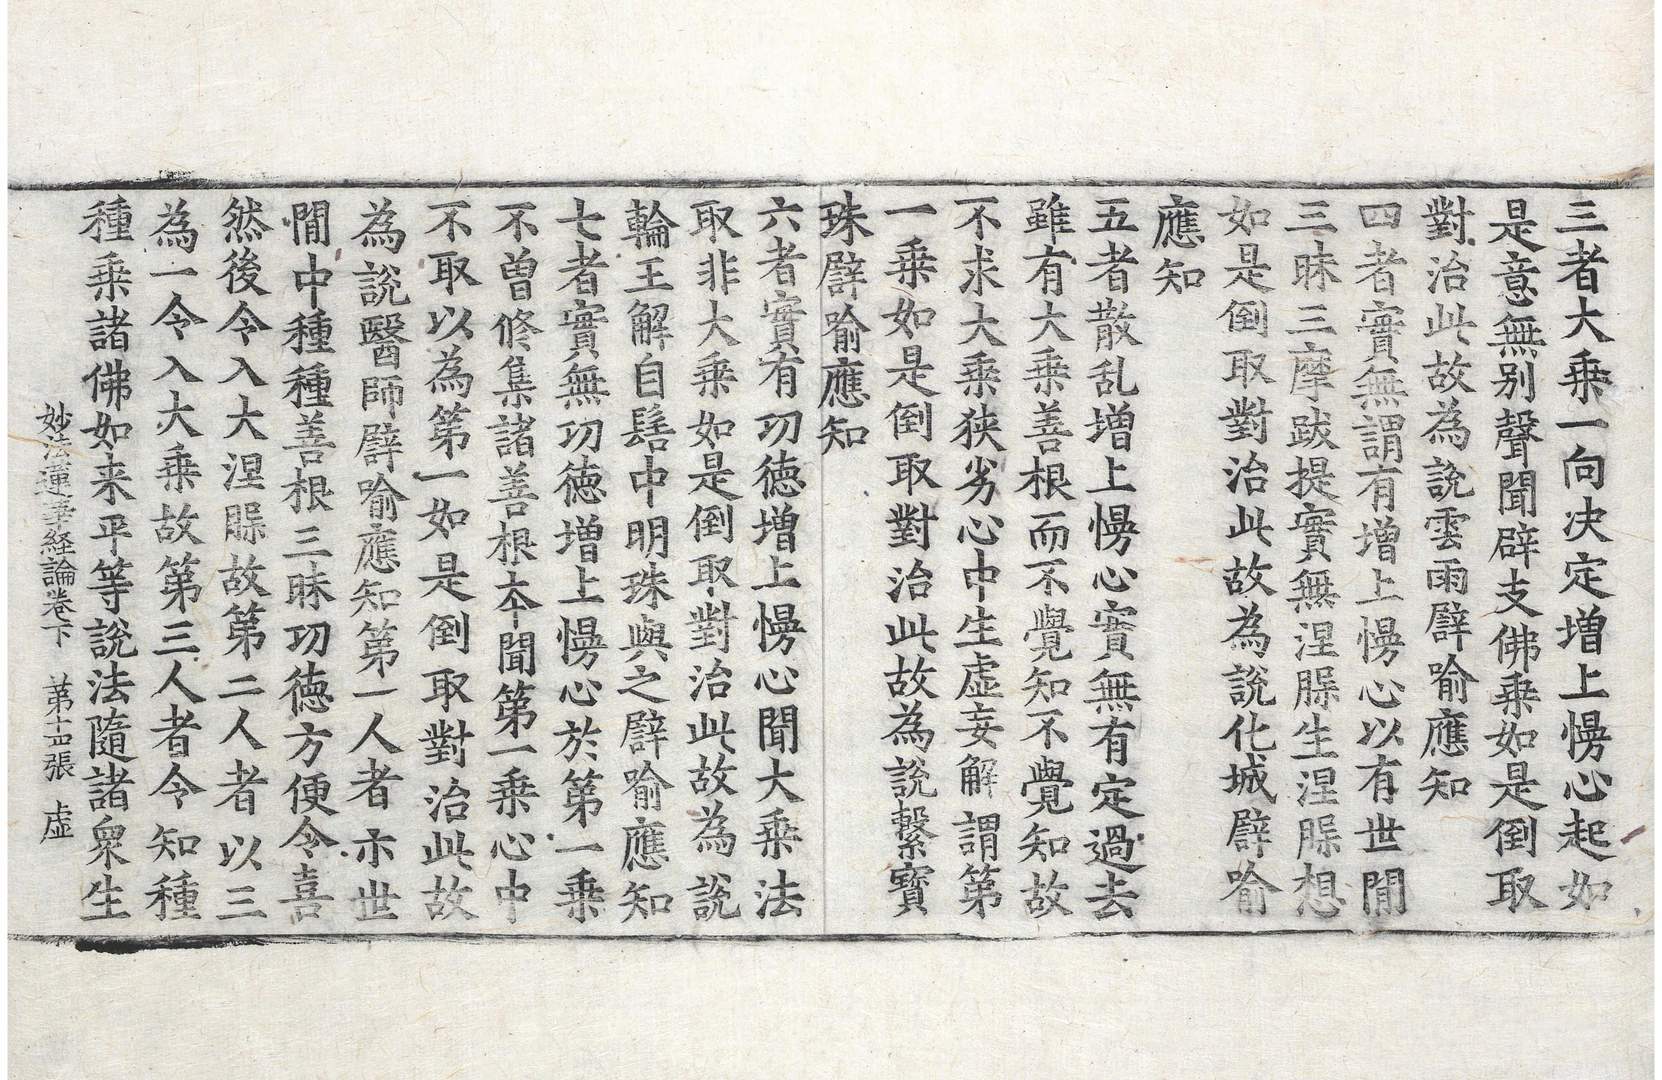 三者大乗一向决定増上慢心起如
是意無别聲聞辟支佛乗如是倒取
對治此故為說雲雨譬喻應知
四者實無謂有增上慢心以有世閒
三昧三摩跋提實無涅槃生涅槃想
如是倒取對治此故為說化城譬喻
應知
五者散乱增上慢心實無有定過去
雖有大乗善根而不覺知不覺知故
不求大乗狹劣心中生虛妄解謂第
一乗如是倒取對治此故為說繫寶
珠譬喻應知
六者實有功徳增上慢心聞大乗法
取非大乗如是倒取對治此故為說
輪王解自髻中明珠與之譬喻應知
七者實無功徳增上慢心於第一乗
不曽修集諸善根本聞第一乗心中
不取以為第一如是倒取對治此故
為說醫師譬喻應知第一人者示世
閒中種種善根三昧功徳方便令喜
然後令入大涅槃故第二人者以三
為一令入大乗故第三人者令知種
種乗諸佛如来平等說法隨諸衆生
妙法蓮華経論卷下　第十四張　虛